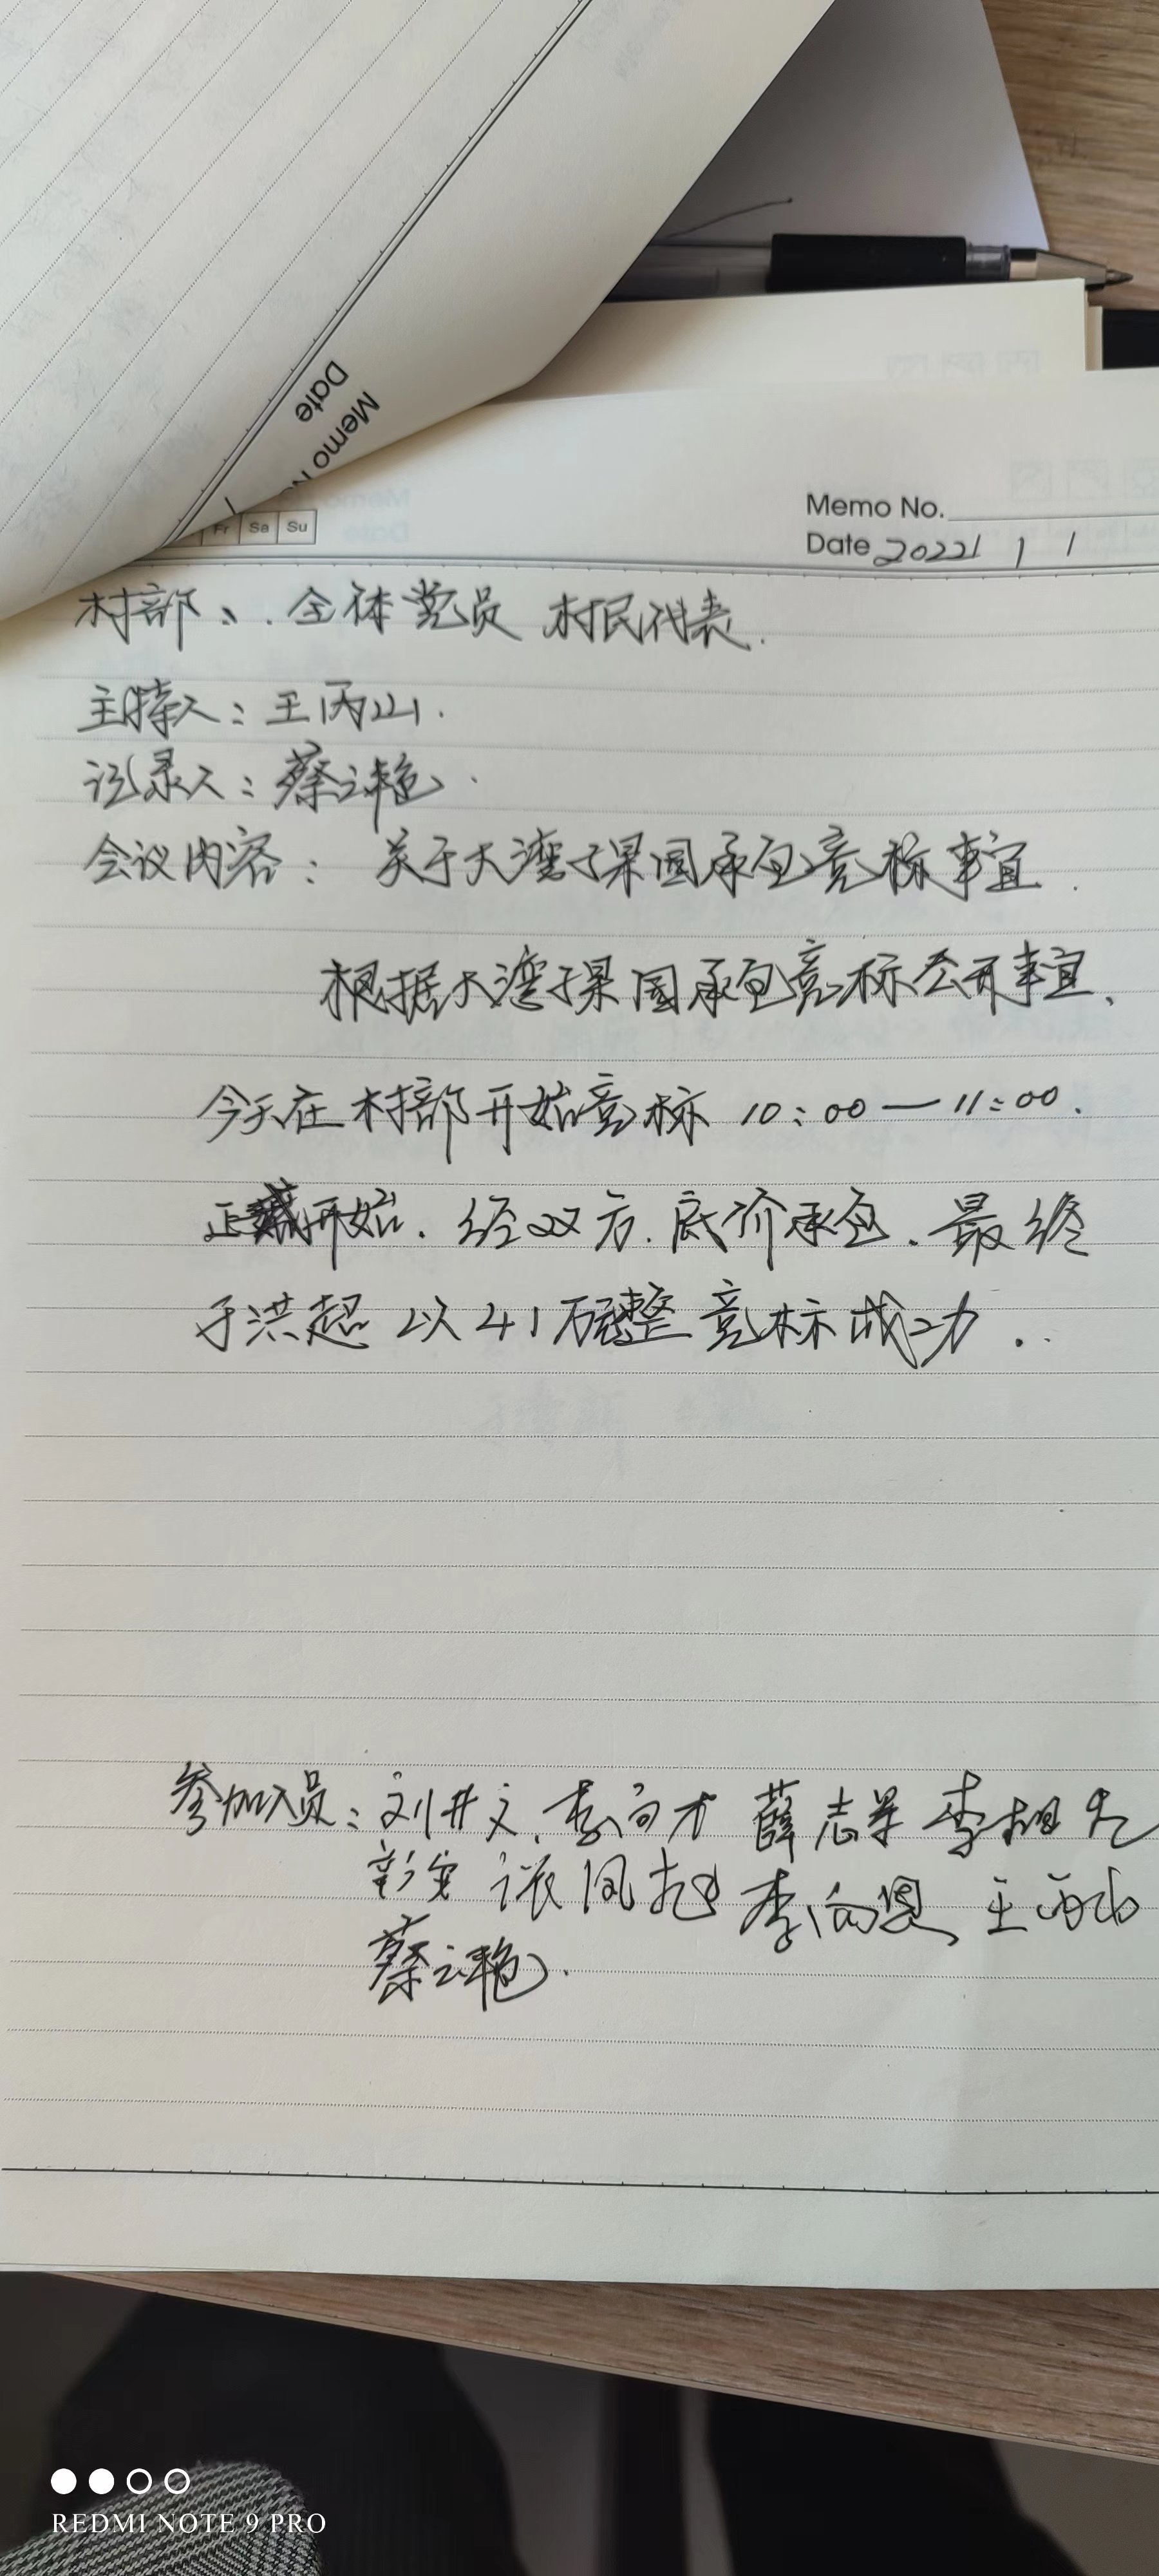 Date
Memo N
Fr Sa Su
Memo No.
Date 2022 1 1
村部、全体党员 村民代表.
主持人：王丙山.
记录人：蔡云艳.
会议内容：关于大湾子果园承包竞标事宜.
根据大湾子果园承包竞标公开事宜、
今天在村部开始竞标 10:00—11:00.
正式开始.经双方.底价承包.最终
于洪超以41万整竞标成功.
参加人员：刘井文、李向才 薛志军 李
李向恩、王丙山
蔡云艳.
REDMI NOTE 9 PRO